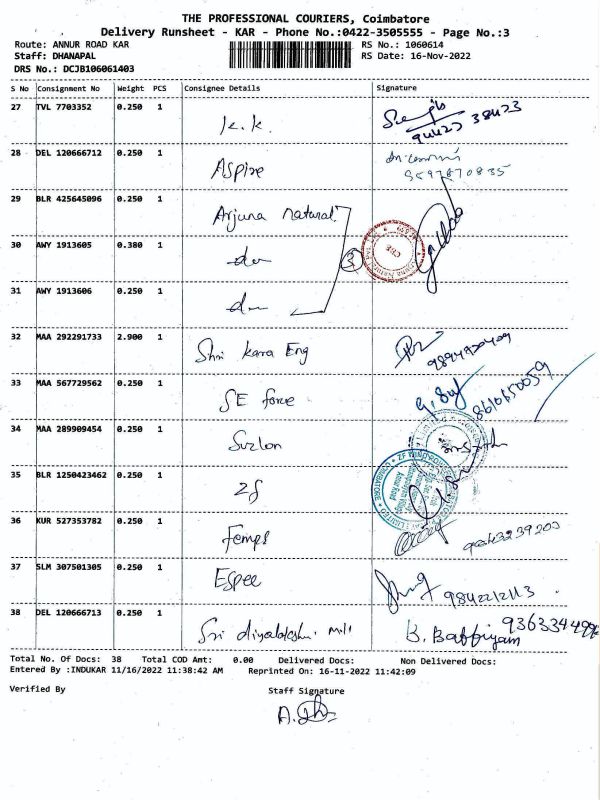 THE PROFESSIONAL COURIERS, Coimbatore
Delivery Runsheet - KAR - Phone No.:0422-3505555 - Page No.:3
Route: ANNUR ROAD KAR
Staff: DHANAPAL
DRS No.: DCJB106061403
RS No.: 1060614
RS Date: 16-Nov-2022
S No Consignment No Weight PCS Consignee Details Signature
27 TVL 7703352 0.250 1 K.K. 94423 38423
28 DEL 120666712 0.250 1 Aspire
9597870835
29 BLR 425645096 0.250 1 Arjuna natural
30 AWY 1913605 0.380 1 do 3
31 AWY 1913606 0.250 1 do
32 MAA 292291733 2.900 1 Shri Kara Eng
33 MAA 567729562 0.250 1 SE force 8610650059
34 MAA 289909454 0.250 1 Suzlon
35 BLR 1250423462 0.250 1 ZF
36 KUR 527353782 0.250 1 Femps
37 SLM 307501305 0.250 1 Espee 9842212113
38 DEL 120666713 0.250 1 Sri mill B.
Total No. Of Docs: 38 Total COD Amt: 0.00 Delivered Docs: Non Delivered Docs:
Entered By :INDUKAR 11/16/2022 11:38:42 AM Reprinted On: 16-11-2022 11:42:09
Verified By Staff Signature